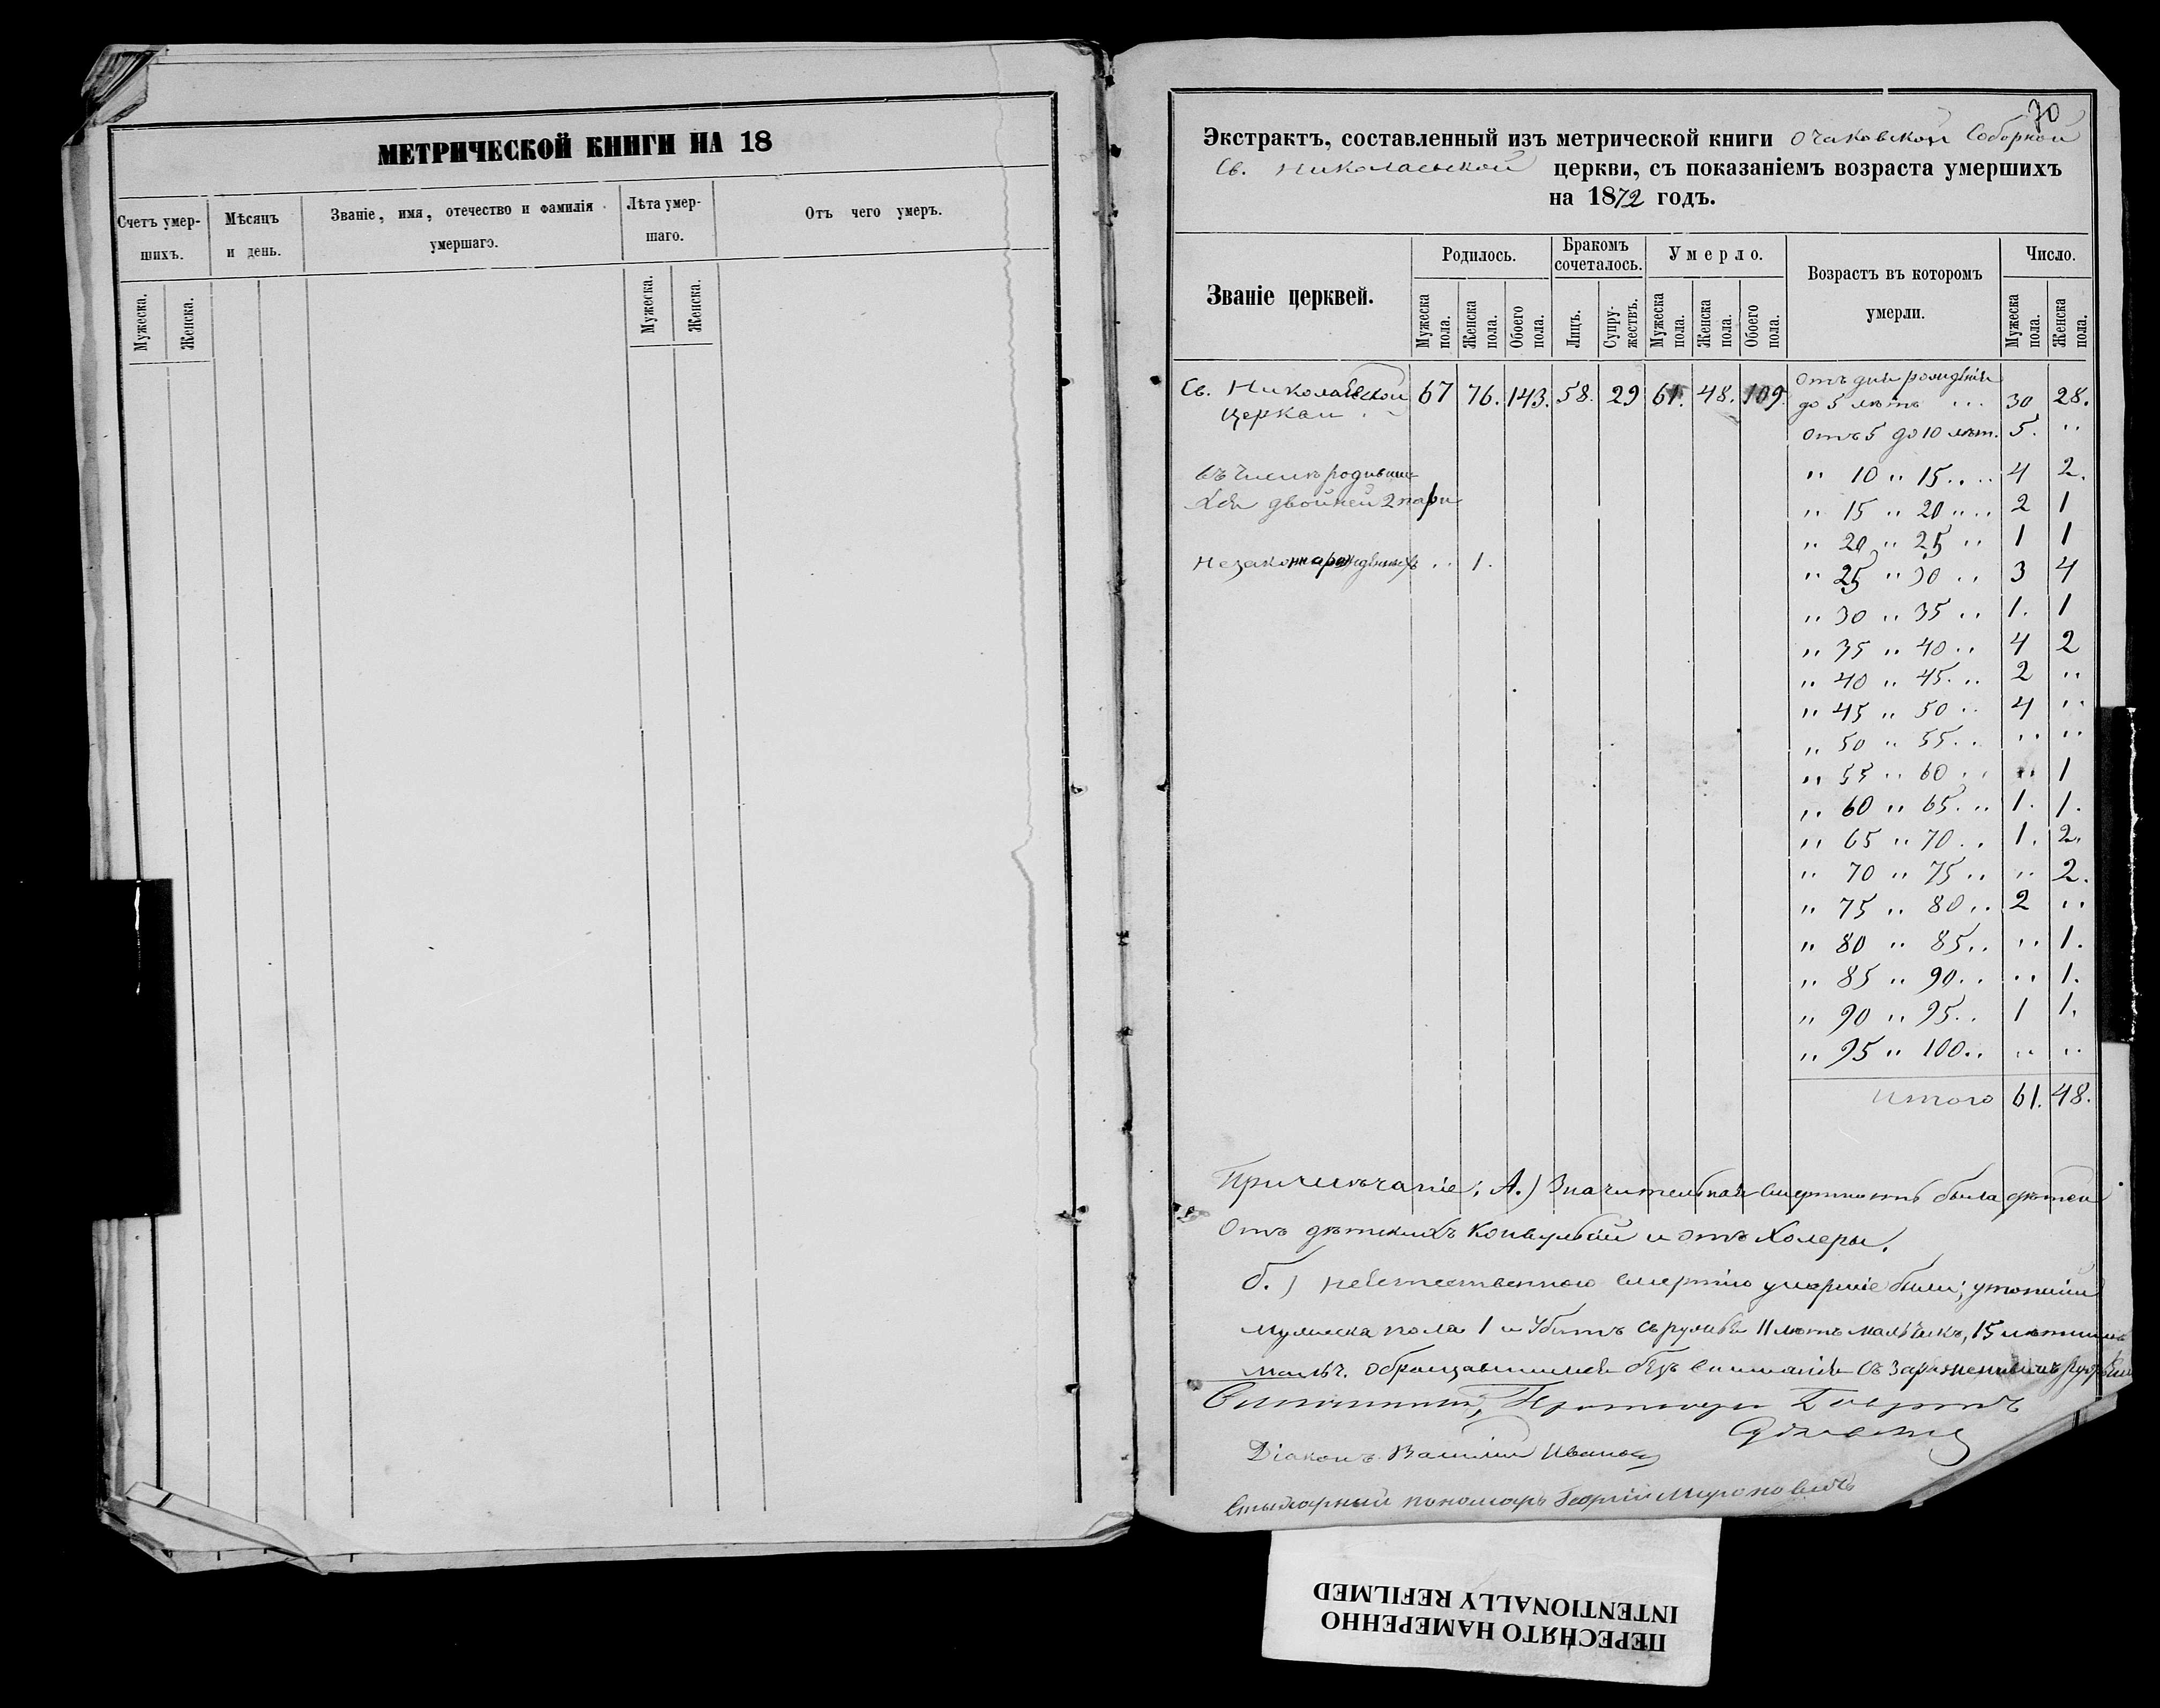 МЕТРИЧЕСКОЙ КНИГИ НА 18
Счетъ умер-
шихъ.
Мѣсяцъ
и день.
Званіе, имя, отечество и фамилія
умершаго.
Лѣта умер-
шаго.
Отъ чего умеръ.
Мужеска.
Женска.
Мужеска.
Женска.
70
Экстрактъ, составленный изъ метрической книги Очаковской Соборной
Св. Николаевской церкви, съ показаніемъ возраста умершихъ
на 1872 годъ.
Званіе церквей.
Родилось.
Бракомъ
сочеталось.
Умерло.
Возрастъ въ которомъ
умерли.
Число.
Мужеска пола.
Женска пола.
Обоего пола.
Лицъ.
Супру-жествъ.
Мужеска пола.
Женска пола.
Обоего пола.
Мужеска пола.
Женска пола.
Св. Николаевской 67 76. 143. 58. 29 61. 48. 109.
церкви
Отъ дня рожденія
до 5 лѣтъ 30 28.
Отъ 5 до 10 лѣт. 5. "
Въ числѣ родивши-
хся двойней 2 пары
Незаконнорожденныхъ .. 1.
" 10 " 15 .. 4 2.
" 15 " 20 .. 2 1
" 20 " 25 .. 1 1
" 25 " 30 .. 3 4
" 30 " 35 .. 1. 1
" 35 " 40 .. 4 2
" 40 " 45 .. 2 "
" 45 " 50 .. 4 "
" 50 " 55 .. " "
" 55 " 60 .. " 1
" 60 " 65 .. 1. 1.
" 65 " 70 .. 1. 2.
" 70 " 75 .. " 2.
" 75 " 80 .. 2 "
" 80 " 85 .. " 1.
" 85 " 90 .. " 1.
" 90 " 95 .. 1 1.
" 95 " 100 .. " "
Итого 61. 48.
Примѣчаніе: А.) Значительная смертность была дѣтей
Отъ дѣтскихъ конвульсій и отъ Холеры.
б.) неестественною смертію умершіе были; утопшій
мужеска пола 1 и Убитъ съ ружья 11 лѣтъ мальчикъ, 15 лѣтнимъ
мальч. обращавшимся безъ вниманія съ заряженнымъ
Протоіерей
Діаконъ Василій Иванов
пономарь Георгій Мироновичъ
ПЕРЕСНЯТО НАМЕРЕННО
INTENTIONALLY REFILMED